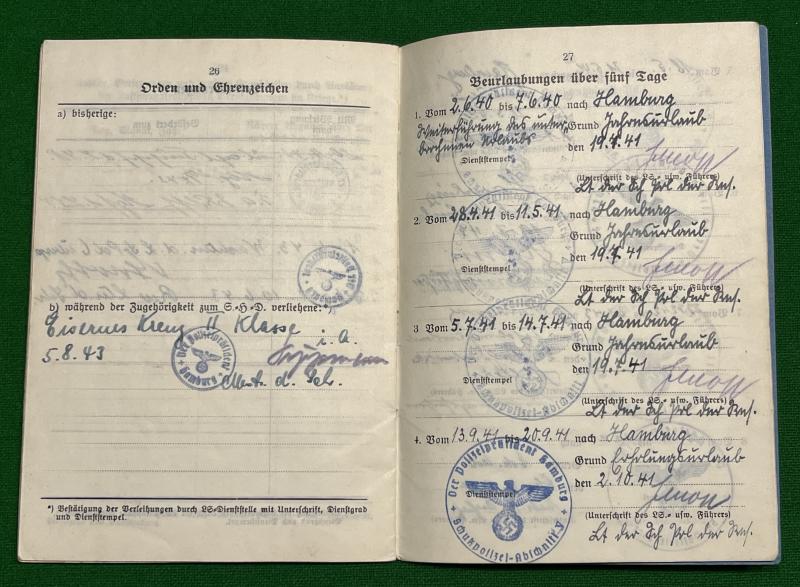 26
Orden und Ehrenzeichen
a) bisherige:
b) während der Zugehörigkeit zum S.-H.-D. verliehene:*)
Eisernes Kreuz II Klasse
i. A.
5.8.43
Der Polizeipräsident
Hamburg
d. Sch.
*) Bestätigung der Verleihungen durch LS-Dienststelle mit Unterschrift, Dienstgrad
und Dienststempel.
27
Beurlaubungen über fünf Tage
1. Vom 2.6.40 bis 7.6.40 nach Hamburg
Weiterführung des unter- Grund Jahresurlaub
brochenen Urlaubs den 19.7.41
Dienststempel
(Unterschrift des LS.- usw. Führers)
Lt der Sch Pol der Res.
2. Vom 28.4.41 bis 11.5.41 nach Hamburg
Grund Jahresurlaub
den 19.7.41
Dienststempel
(Unterschrift des LS.- usw. Führers)
Lt der Sch Pol der Res.
3 Vom 5.7.41 bis 14.7.41 nach Hamburg
Grund Jahresurlaub
den 19.7.41
Dienststempel
(Unterschrift des LS.- usw. Führers)
Lt der Sch Pol der Res.
4. Vom 13.9.41 bis 20.9.41 nach Hamburg
Grund Erholungsurlaub
den 2.10.41
Dienststempel
Der Polizeipräsident Hamburg
Schutzpolizei-Abschnitt
(Unterschrift des LS.- usw. Führers)
Lt der Sch Pol der Res.